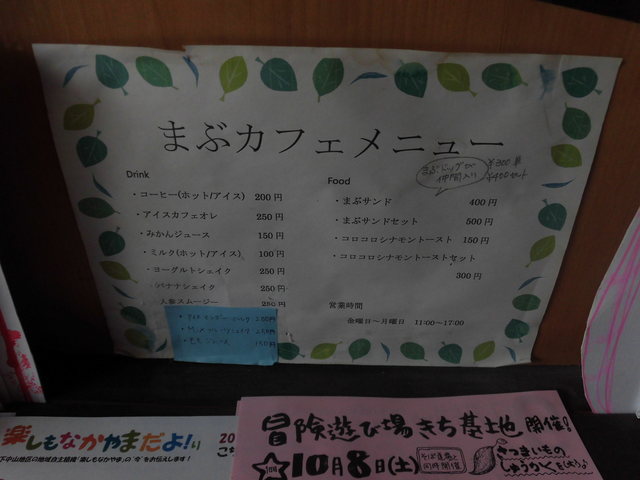 まぶカフェメニュー
Drink
・コーヒー(ホット/アイス) 200円
・アイスカフェオレ 250円
・みかんジュース 150円
・ミルク(ホット/アイス) 100円
・ヨーグルトシェイク 250円
・バナナシェイク 250円
・人参スムージー 250円
150円
Food
まぶドッグが
仲間入り
¥300 単
¥400 セット
・まぶサンド 400円
・まぶサンドセット 500円
・コロコロシナモントースト 150円
・コロコロシナモントーストセット
300円
営業時間
金曜日～月曜日 11:00～17:00
楽しもなかやまだよ!り
下中山地区の地域自主組織「楽しもなかやま」の“今”をお伝えします!
20
冒険遊び場きち基地 開催!
10月8日(土)
そば直売と
同時開催
さつまいもの
しゅうかくも